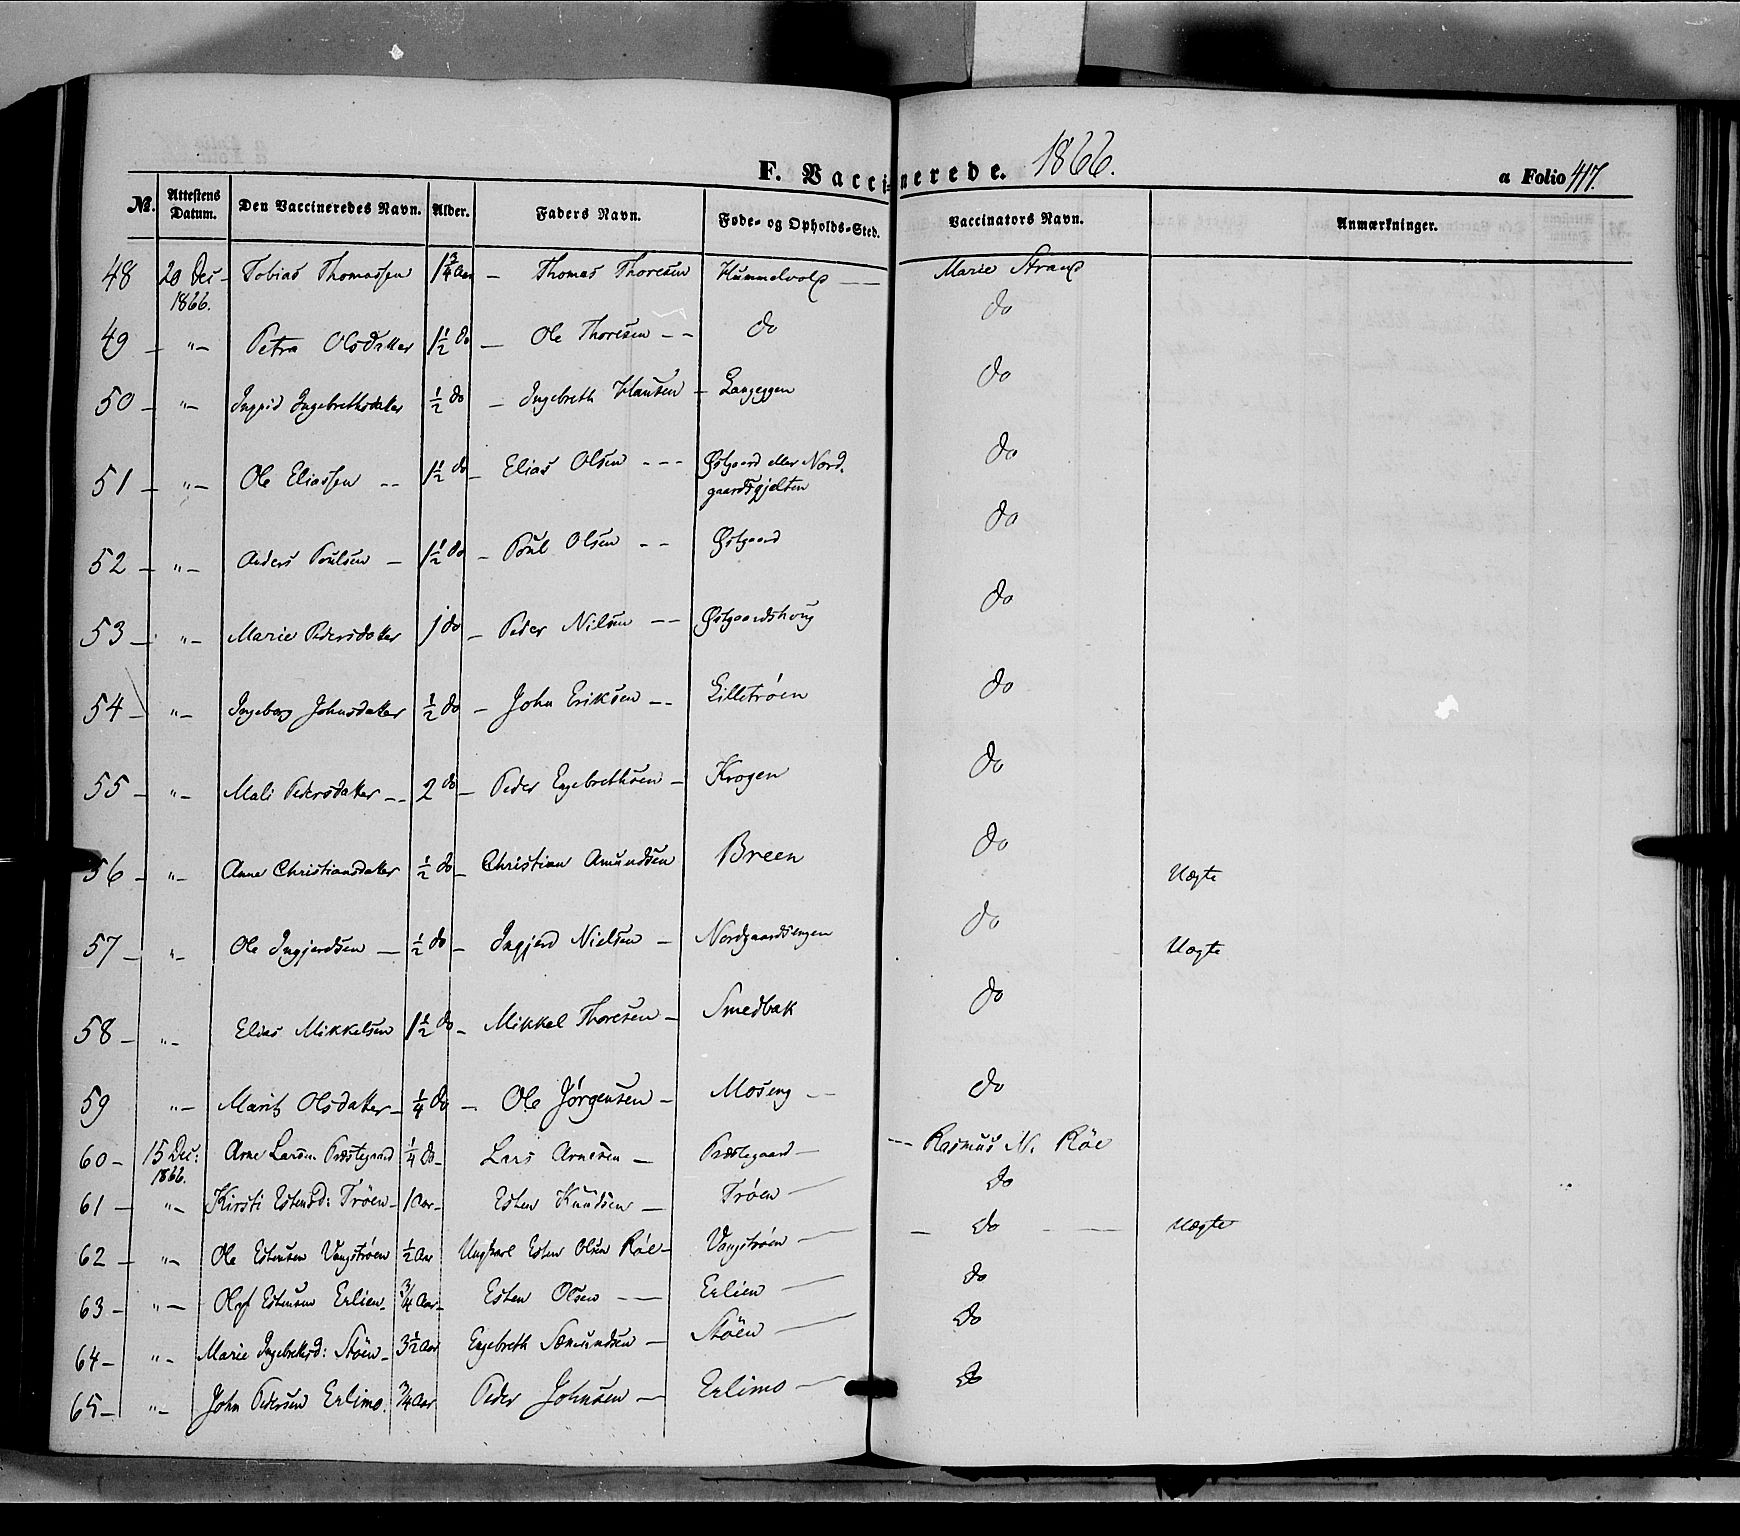 F. Vaccinerede. 1866.
a Folio 417.
No. Attestens Datum. Den Vaccineredes Navn. Alder. Faders Navn. Føde- og Opholds-Sted. Vaccinators Navn. Anmærkninger.
48 20 Des 1866. Tobias Thomassen 1 3/4 Aar – Thomas Thoresen Hummelvold – – Marie Strand
49 – "– Petra Olsdatter 1 1/2 do – Ole Thoresen – – do do
50 – "– Ingrid Ingebrethsdatter 1/2 do – Ingebreth Hansen – Langeggen do
51 – "– Ole Eliassen – – 1 1/2 do – Elias Olsen – – – Østgaard eller Nord-
gaardsgjelten do
52 – "– Anders Poulsen – 1 1/2 do – Poul Olsen – – Østgaard do
53 – "– Marie Pedersdatter 1 do – Peder Nilsen – – Østgaardshoug do
54 – "– Ingeborg Johnsdatter 1/2 do – John Eriksen – – Lilletrøen do
55 – "– Mali Pedersdatter – – 2 do – Peder Engebrethsen – Krogen do
56 – "– Anne Christiansdatter 1/2 do – Christian Amundsen Breen do Uægte
57 – "– Ole Ingjerdsen – 1/2 do – Ingjerd Nielsen – Nordgaardsengen do Uægte
58 – "– Elias Mikkelsen 1 1/2 do – Mikkel Thoresen – Smedbak do
59 "– Marit Olsdatter – 1/4 do – Ole Jørgensen – Moseng – – do
60 – 15 Des: 1866. Arne Larsen Præstegaard 1/4 do – Lars Arnesen – Præstegaard – – – Rasmus N. Røe
61 – "– Kirsti Estensd: Trøen – 1 Aar – Esten Knudsen – Trøen – do
62 – "– Ole Estensen Vangstrøen 1/2 Aar Ungkarl Esten Olsen Røe – Vangstrøen – – do – – Uægte
63 – "– Oluf Estensen Erlien – 3/4 Aar – Esten Olsen – – Erlien – do
64 – "– Marie Ingebrethsd: Støen – 3 1/2 Aar Engebreth Sæmundsen – Støen – do
65 – "– John Pedersen Erlimo. 3/4 Aar Peder Johnsen – Erlimo – do